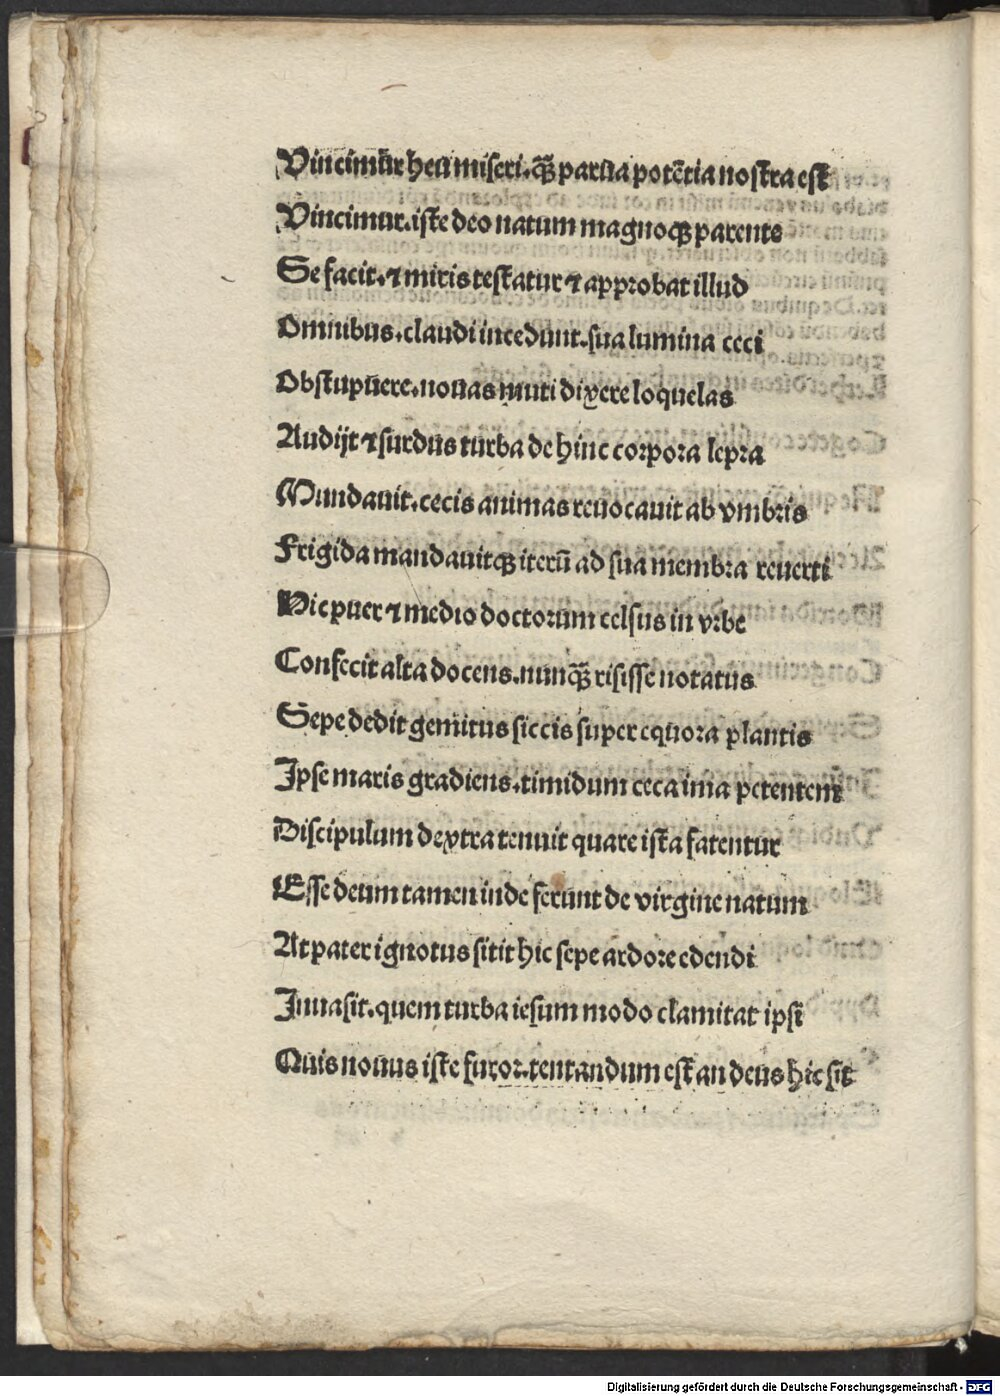 Vincimur heu miseri. qȝ̄ parua potētia nostra est
Vincimur. iste deo natum magnoqȝ parente
Se facit. ⁊ miris testatur ⁊ approbat illud
Omnibus. claudi incedunt. sua lumina ceci
Obstupuere. nouas muti dixere loquelas
Audijt ⁊ surdus turba de hinc corpora lepra
Mundauit. cecis animas reuocauit ab vmbris
Frigida mandauitqȝ iterū ad sua membra reuerti
Hic puer ⁊ medio doctorum celsus in vrbe
Confecit alta docens. nunqȝ̄ risisse notatus
Sepe dedit gemitus siccis super equora plantis
Ipse maris gradiens. timidum ceca ima petentem
Discipulum dextra tenuit quare ista fatentur
Esse deum tamen inde ferunt de virgine natum
At pater ignotus sitit hic sepe ardore edendi
Inuasit. quem turba iesum modo clamitat ipsī
Quis nouus iste furor. tentandum est an deus hic sit
Digitalisierung gefördert durch die Deutsche Forschungsgemeinschaft - DFG